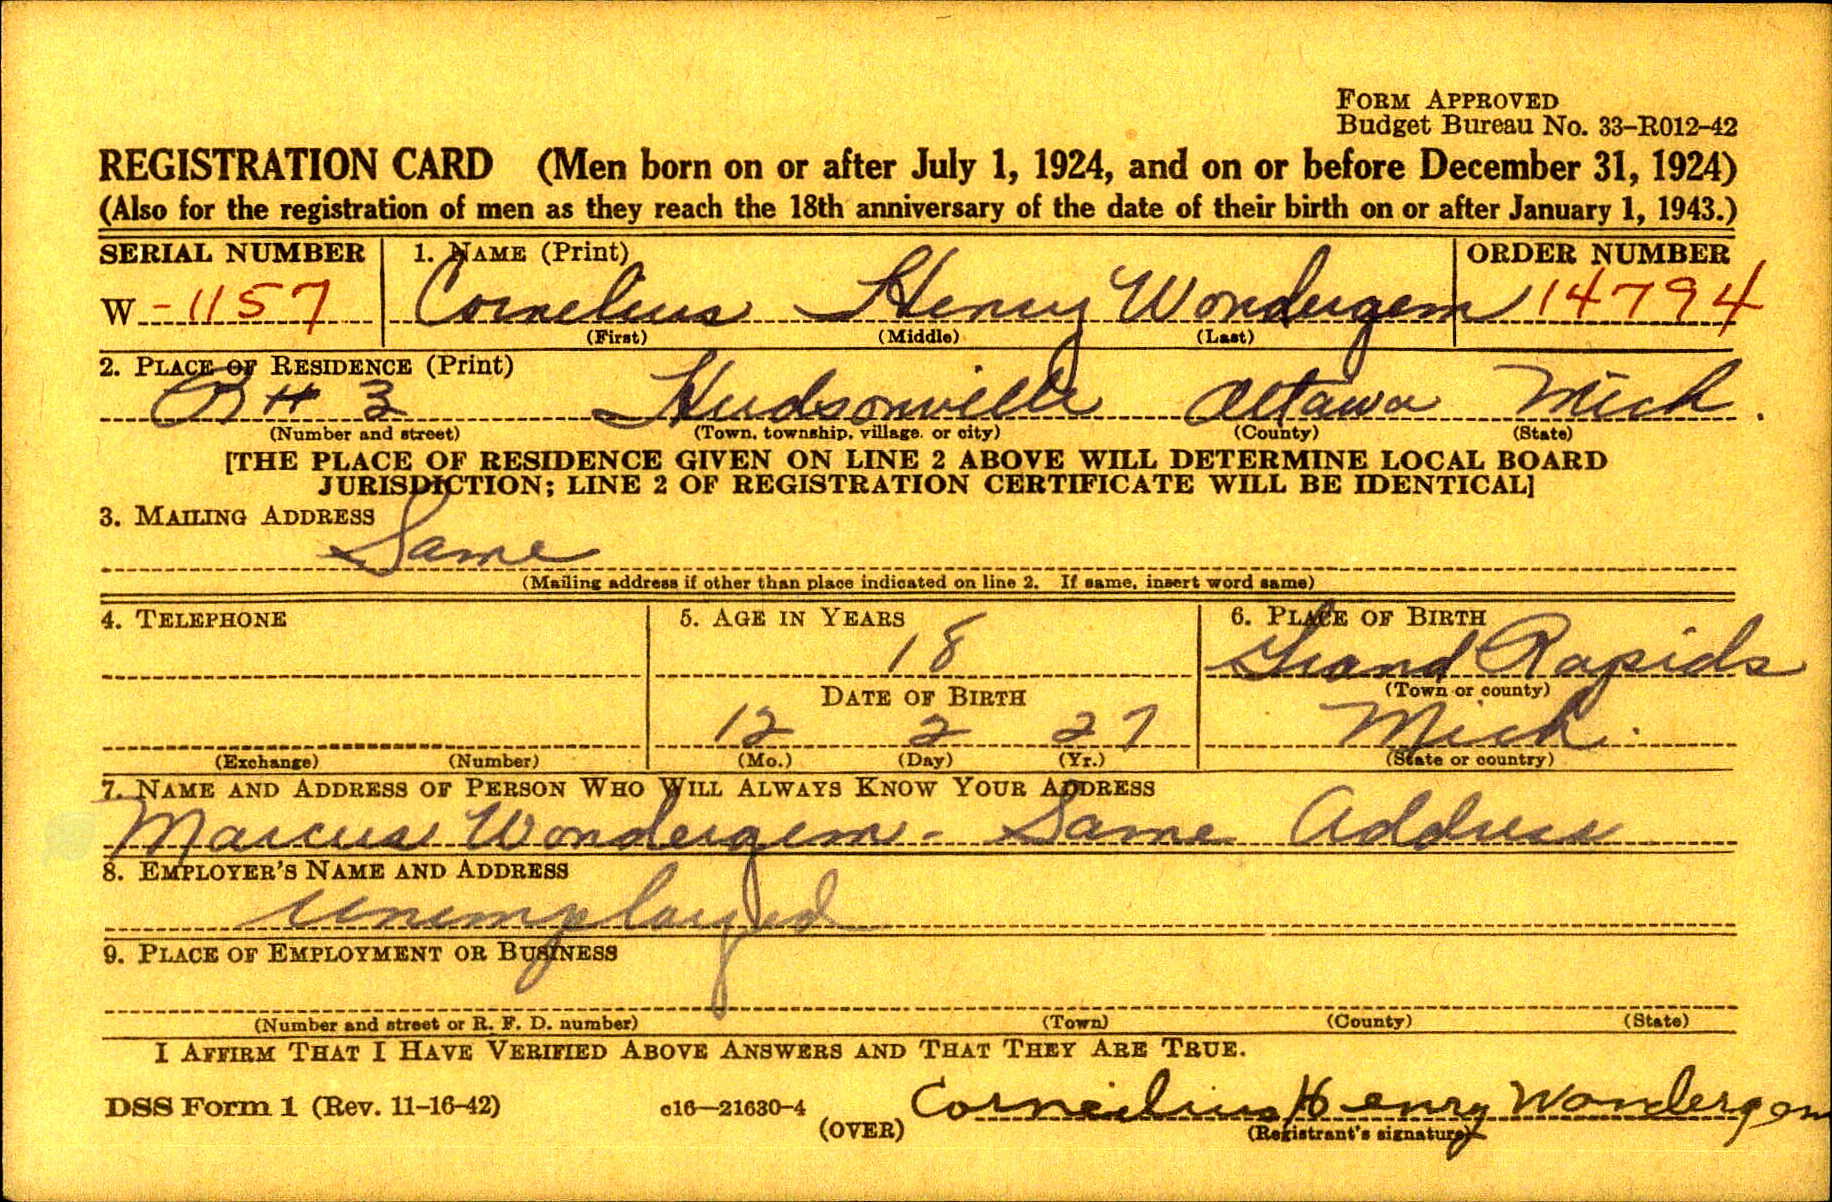 FORM APPROVED
Budget Bureau No. 33–R012–42
REGISTRATION CARD (Men born on or after July 1, 1924, and on or before December 31, 1924)
(Also for the registration of men as they reach the 18th anniversary of the date of their birth on or after January 1, 1943.)
SERIAL NUMBER 1. NAME (Print) ORDER NUMBER
W -1157 Cornelius Henry Wondergem 14794
(First) (Middle) (Last)
2. PLACE OF RESIDENCE (Print)
R # 3 Hudsonville Ottawa Mich.
(Number and street) (Town, township, village, or city) (County) (State)
[THE PLACE OF RESIDENCE GIVEN ON LINE 2 ABOVE WILL DETERMINE LOCAL BOARD
JURISDICTION; LINE 2 OF REGISTRATION CERTIFICATE WILL BE IDENTICAL]
3. MAILING ADDRESS
Same
(Mailing address if other than place indicated on line 2. If same, insert word same)
4. TELEPHONE 5. AGE IN YEARS 6. PLACE OF BIRTH
18 Grand Rapids
(Town or county)
DATE OF BIRTH
12 2 27 Mich.
(Exchange) (Number) (Mo.) (Day) (Yr.) (State or country)
7. NAME AND ADDRESS OF PERSON WHO WILL ALWAYS KNOW YOUR ADDRESS
Marcus Wondergem - Same Address
8. EMPLOYER'S NAME AND ADDRESS
Unemployed
9. PLACE OF EMPLOYMENT OR BUSINESS
(Number and street or R. F. D. number) (Town) (County) (State)
I AFFIRM THAT I HAVE VERIFIED ABOVE ANSWERS AND THAT THEY ARE TRUE.
DSS Form 1 (Rev. 11-16-42) c16—21630-4 (OVER) Corneilius Henry Wondergem
(Registrant's signature)